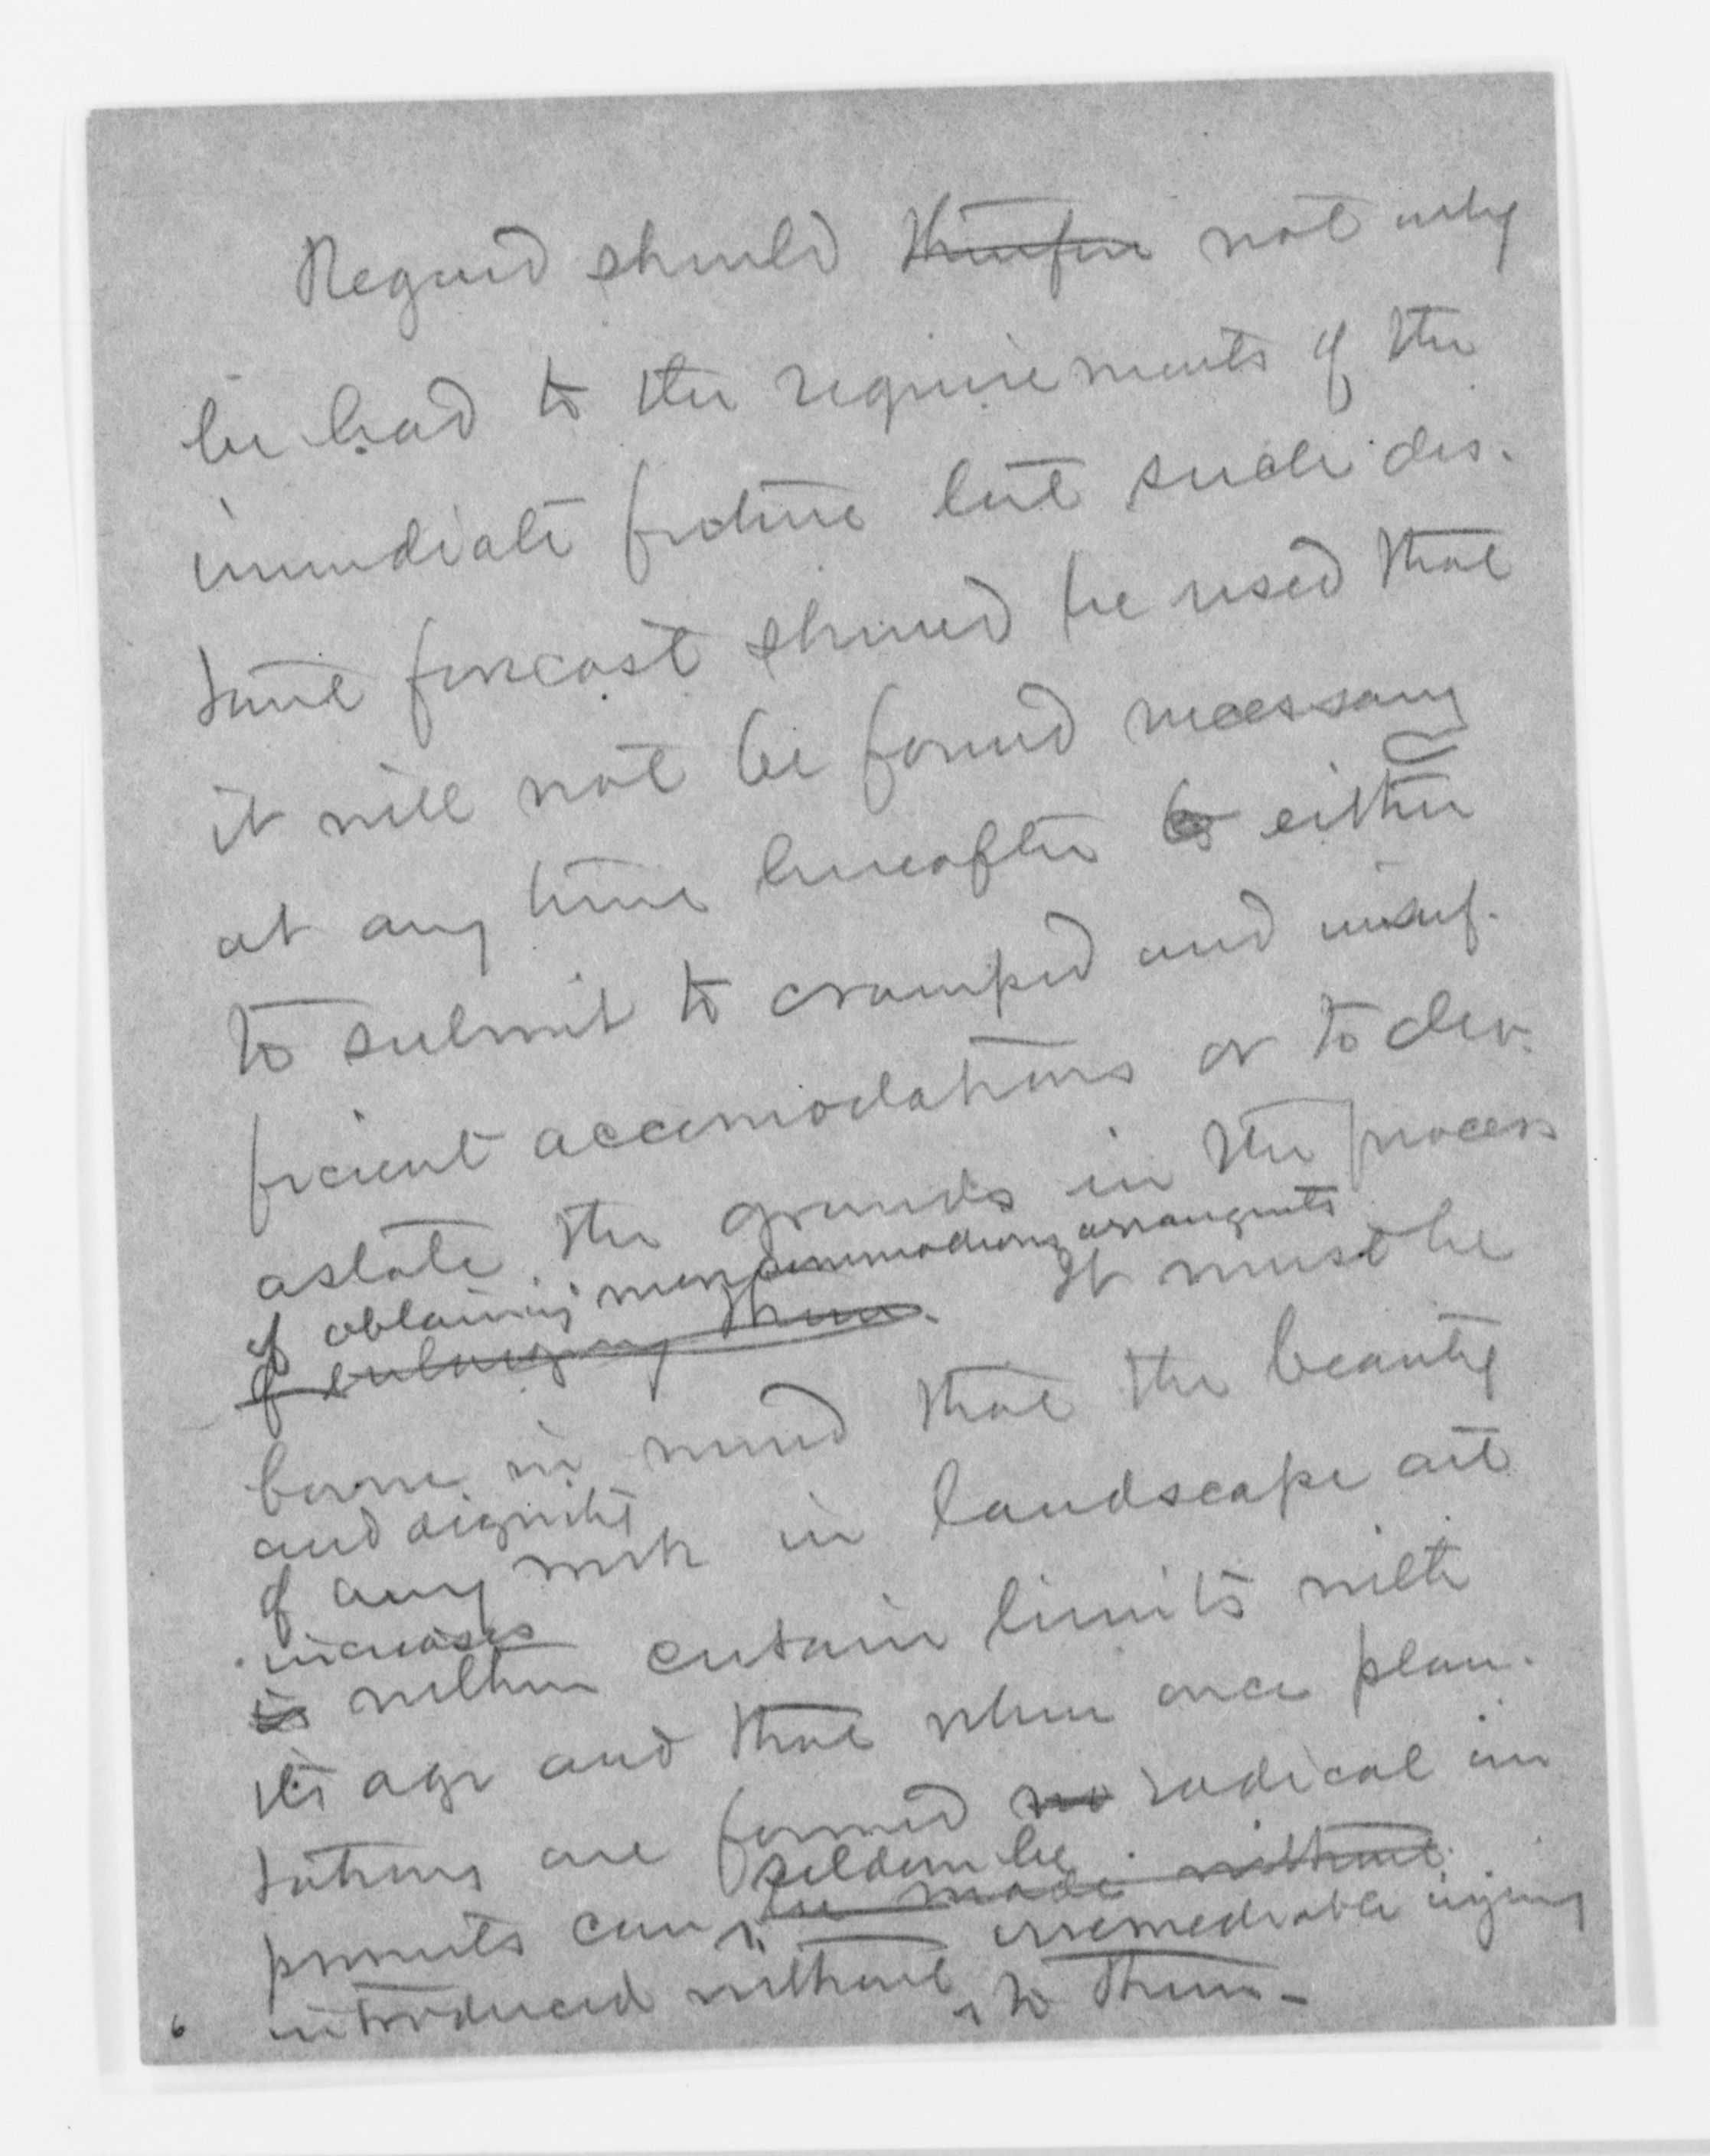 Regard should therefore not only
be had to the requirements of the
immediate future but such dis-
tant forecast should be used that
it will not be found necessary
at any time hereafter to either
to submit to cramped and insuf-
ficient accomodations or to dev-
astate the grounds in the process
of obtaining more commodious arrangments
of enlarging them. It must be
borne in mind that the beauty
and dignity
of any work in landscape art
increases
is within certain limits with
its age and that when once plan-
tations are formed no radical im
provments can seldom be
be made without
introduced without irremediable injury
to them.